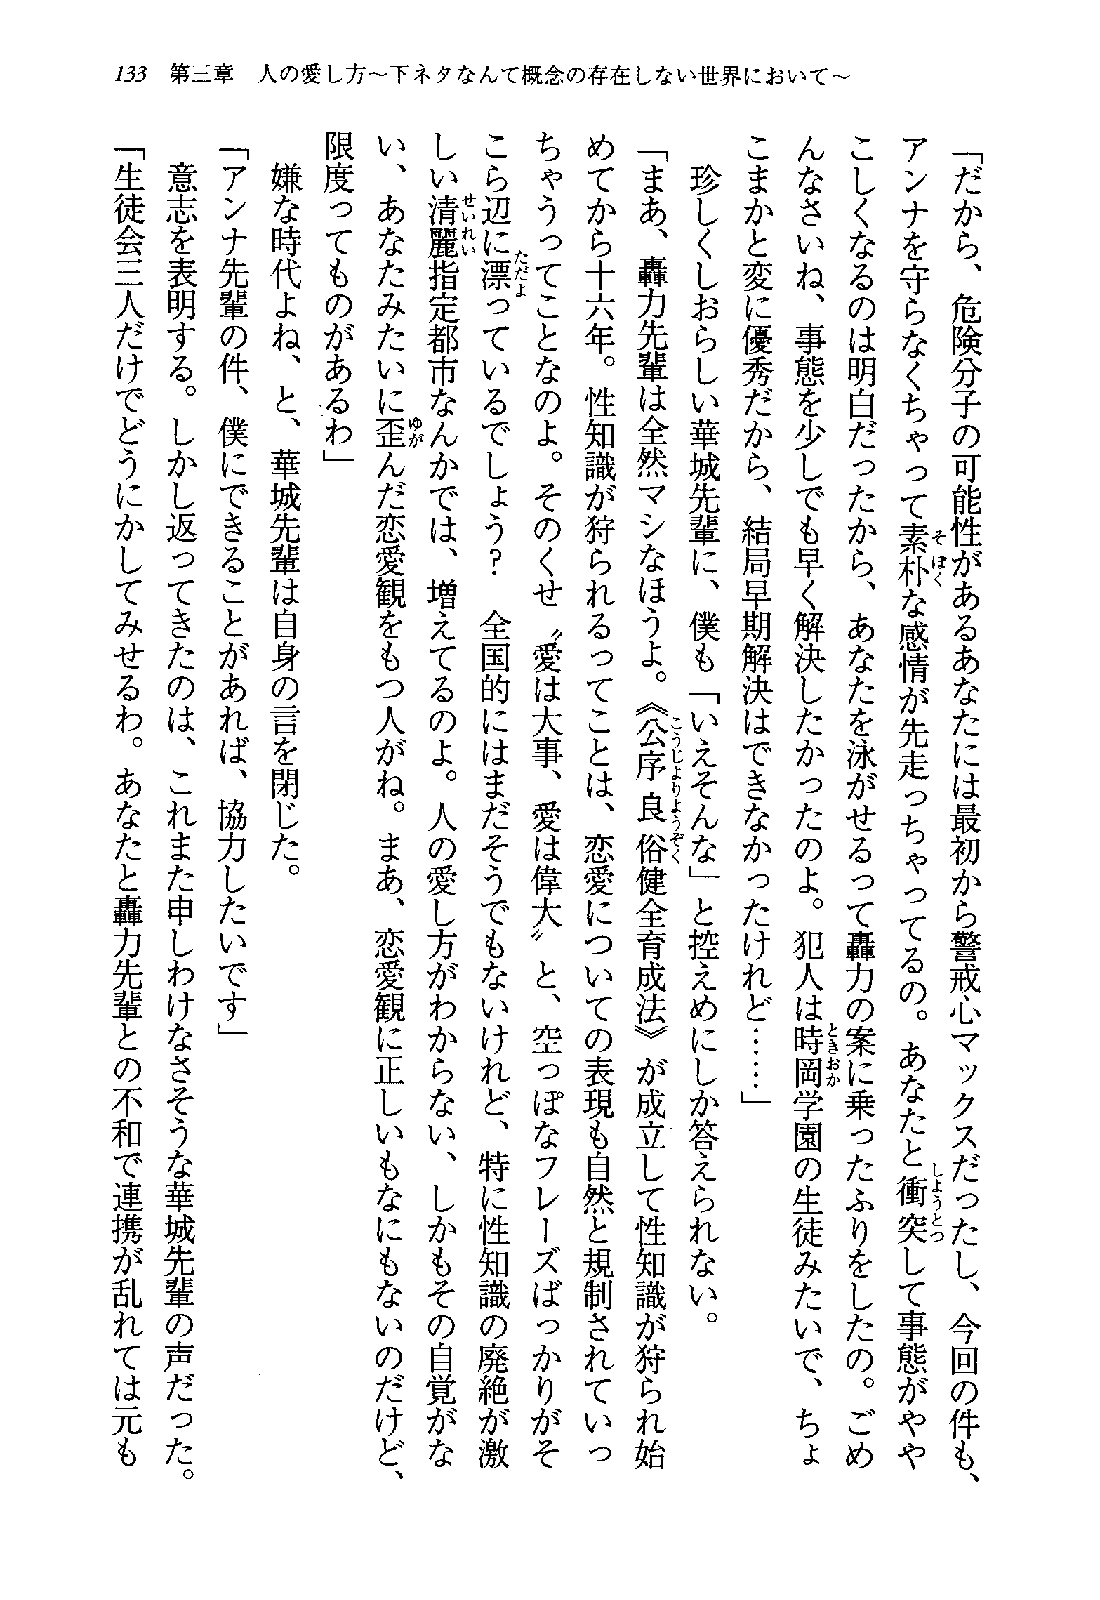 133　第三章　人の愛し方～下ネタなんて概念の存在しない世界において～
「だから、危険分子の可能性があるあなたには最初から警戒心マックスだったし、今回の件も、
アンナを守らなくちゃって素朴な感情が先走っちゃってるの。あなたと衝突して事態がやや
こしくなるのは明白だったから、あなたを泳がせるって轟力の案に乗ったふりをしたの。ごめ
んなさいね、事態を少しでも早く解決したかったのよ。犯人は時岡学園の生徒みたいで、ちょ
こまかと変に優秀だから、結局早期解決はできなかったけれど……」
　珍しくしおらしい華城先輩に、僕も「いえそんな」と控えめにしか答えられない。
「まあ、轟力先輩は全然マシなほうよ。《公序良俗健全育成法》が成立して性知識が狩られ始
めてから十六年。性知識が狩られるってことは、恋愛についての表現も自然と規制されていっ
ちゃうってことなのよ。そのくせ〝愛は大事、愛は偉大〟と、空っぽなフレーズばっかりがそ
こら辺に漂っているでしょう？　全国的にはまだそうでもないけれど、特に性知識の廃絶が激
しい清麗指定都市なんかでは、増えてるのよ。人の愛し方がわからない、しかもその自覚がな
い、あなたみたいに歪んだ恋愛観をもつ人がね。まあ、恋愛観に正しいもなにもないのだけど、
限度ってものがあるわ」
　嫌な時代よね、と、華城先輩は自身の言を閉じた。
「アンナ先輩の件、僕にできることがあれば、協力したいです」
　意志を表明する。しかし返ってきたのは、これまた申しわけなさそうな華城先輩の声だった。
「生徒会三人だけでどうにかしてみせるわ。あなたと轟力先輩との不和で連携が乱れては元も